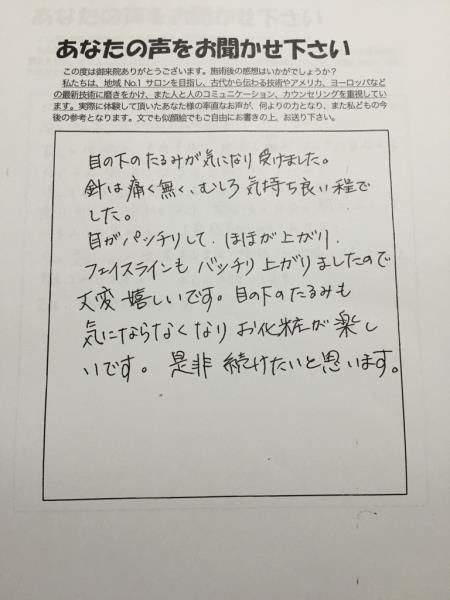 あなたの声をお聞かせ下さい
この度は御来院ありがとうございます。施術後の感想はいかがでしょうか？
私たちは、地域 No.1 サロンを目指し、古代から伝わる技術やアメリカ、ヨーロッパなど
の最新技術に磨きをかけ、また人と人のコミュニケーション、カウンセリングを重視してい
ます。実際に体験して頂いたあなた様の率直なお声が、何よりの力となり、また私どもの今
後の参考となります。文でも似顔絵でもご自由にお書きの上、お送り下さい。
目の下のたるみが気になり受けました。
針は痛く無く、むしろ気持ち良い程で
した。
目がパッチリして、ほほが上がり、
フェイスラインもバッチリ上がりましたので
大変嬉しいです。目の下のたるみも
気にならなくなりお化粧が楽し
いです。是非続けたいと思います。